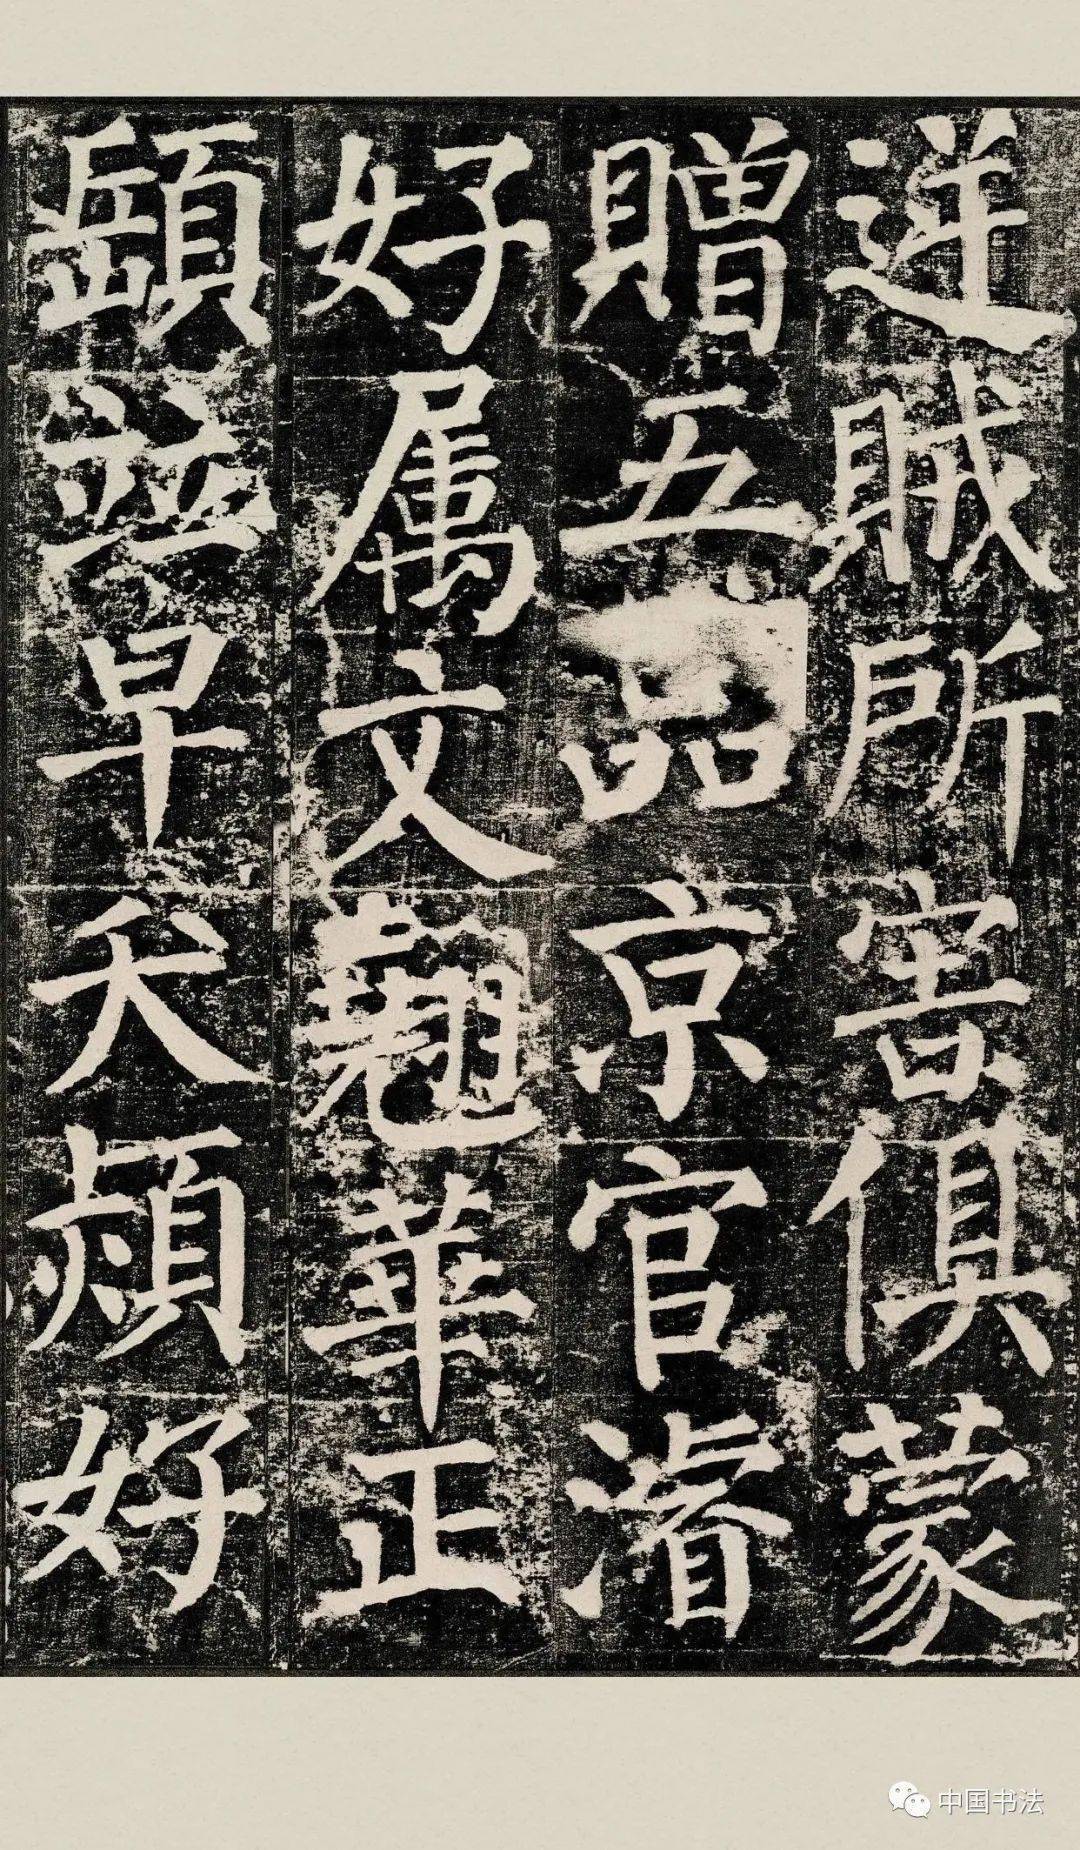 逆賊所害俱蒙
贈五品京官濬
好属文翹華正
並早夭熲好
中国书法